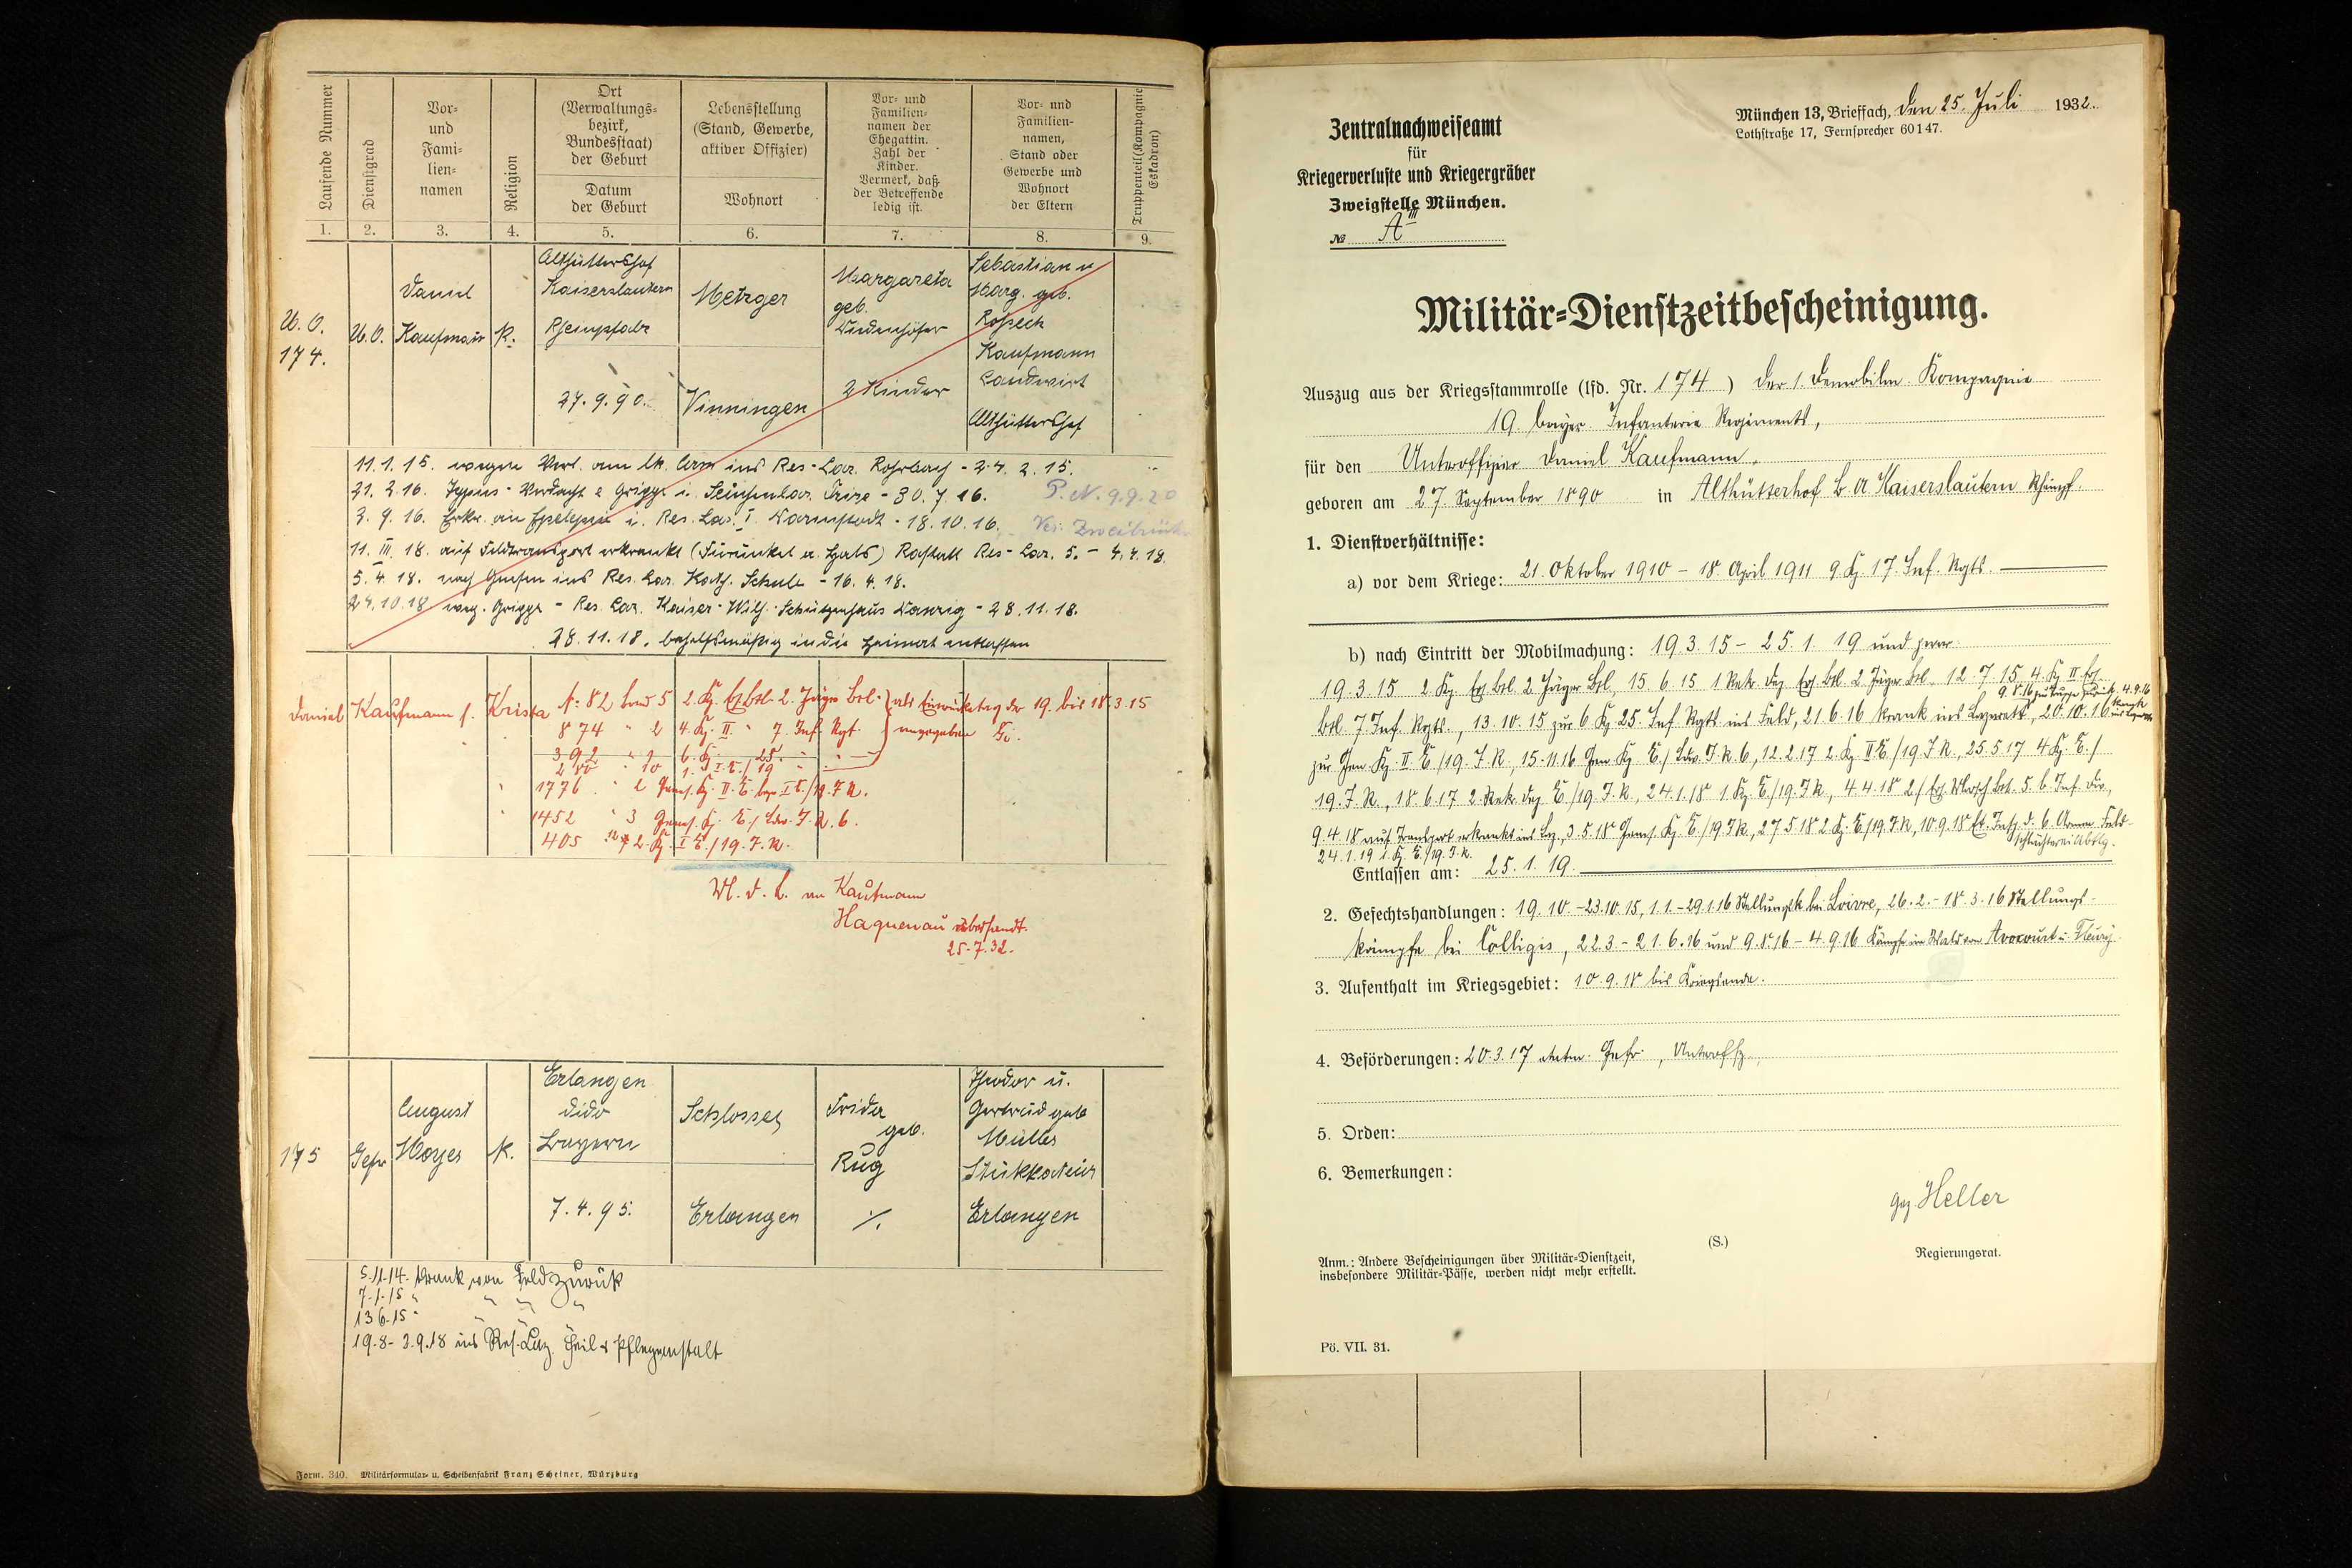 Laufende Nummer
Dienstgrad
Vor-
und
Fami-
lien-
namen
Religion
Ort
(Verwaltungs-
bezirk,
Bundesstaat)
der Geburt
Datum
der Geburt
Lebensstellung
(Stand, Gewerbe,
aktiver Offizier)
Wohnort
Vor- und
Familien-
namen der
Ehegattin.
Zahl der
Kinder.
Vermerk, daß
der Betreffende
ledig ist.
Vor- und
Familien-
namen,
Stand oder
Gewerbe und
Wohnort
der Eltern
Truppenteil (Kompagnie
Eskadron)
1. 2. 3. 4. 5. 6. 7. 8. 9.
U.O.
174.
U.O.
Daniel
Kaufmann
K.
Althütterhof
Kaiserslautern
Rheinpfalz
27.9.90.
Metzger
Vinningen
Margareta
geb.
2 Kinder
Sebastian u
Marg. geb.
Kaufmann
Landwirt
Althütterhof
11.1.15. wegen am lk. Arm ins Res-Laz. Rohrbach - 24.2.15.
21.2.16. Typus-Verdacht & Grippe i. Seuchenlaz. - 30.7.16. P.N. 9.9.20
3.9.16. Erkr. an Epilepsie i. Res. Laz. I. Darmstadt - 18.10.16. Zweibrücken
11.III.18. auf Feldtransport erkrankt (Furunkel a. Hals) Rastatt Res-Laz. 5. - 4.4.18.
5.4.18. nach ins Res. Laz. Kath. Schule - 16.4.18.
24.10.18 weg. Grippe - Res. Laz. Kaiser-Wilh. Schützenhaus Danzig - 28.11.18.
28.11.18. behelfsmäßig in die Heimat entlassen
Daniel Kaufmann s. Krista № 82 Band 5 2. Kp. Ers. Btl. 2. Jäger Btl. als Einrücketag der 19. bis 18.3.15
874 " 2 4. Kp. II. " 7 Inf. Rgt. angegeben
392 6. Kp. 25.
10 1. I. E./19
1776 " 2 Genes. Kp. II. E. I E./19. J.R.
1452 " 3 Genes. Kp. E./Ldw. J.R. 6.
405 2. Kp. I E./19. J.R.
Ml. D. B. an Kaufmann
Haguenau übersandt.
25.7.32.
175
Gefr
August
Moyes
K.
Erlangen
dido
Bayern
7.4.95.
Schlosser
Erlangen
Frida
geb.
Rug
./.
Theodor u.
Gertrud geb
Müller
Stukkateur
Erlangen
5.11.14. krank vom Feld zurück
7.1.15 " " " "
13.6.15 " " " "
19.8-3.9.18 ins Res. Laz. Heil & Pflegeanstalt
Form. 340. Militärformular- u. Scheibenfabrik Franz Scheiner, Würzburg
Zentralnachweiseamt
für
Kriegerverluste und Kriegergräber
Zweigstelle München.
№ A III
München 13, Brieffach, den 25. Juli 1932.
Lothstraße 17, Fernsprecher 60147.
Militär-Dienstzeitbescheinigung.
Auszug aus der Kriegsstammrolle (lfd. Nr. 174) der 1. Demobilm. Kompagnie
19. bayer. Infanterie Regiments,
für den Unteroffizier Daniel Kaufmann,
geboren am 27. September 1890 in Althütterhof b. A Kaiserslautern Rheinpf.
1. Dienstverhältnisse:
a) vor dem Kriege: 21. Oktober 1910 - 18. April 1911 9. Kp. 17. Inf. Rgts.
b) nach Eintritt der Mobilmachung: 19.3.15 - 25.1.19 und zwar:
19.3.15 2 Kp. Ers. Btl. 2 Jäger Btl., 15.6.15 1 Rek. Dep. Ers. Btl. 2 Jäger Btl., 12.7.15 4. Kp. II. Ers.
9.8.16 zur Truppe zurück, 4.9.16
Btl. 7 Inf. Rgts., 13.10.15 zur 6 Kp. 25. Inf. Rgts. ins Feld, 21.6.16 krank ins Lazarett, 20.10.16 krank ins Lazarett
zur Gen. Kp. II. E/19. J.R., 15.11.16 Gen Kp. E./Ldw. J.R. 6, 12.2.17 2. Kp. II E./19 J.R., 25.5.17 4 Kp. E./
19. J.R., 18.6.17 2 Rek. Dep E./19 J.R., 24.1.18 1 Kp. E./19. J.R., 4.4.18 2/ 5. b. Inf. Div.,
9.4.18 auf Transport erkrankt ins Lz., 3.5.18 Genes. Kp. E./19. J.R., 27.5.18 2 Kp. E./19. J.R., 10.9.18 Et. Insp. d. 6. Armee Feld-
schlächterei Abtlg.
24.1.19 1. Kp. E./19. J.R.
Entlassen am: 25.1.19.
2. Gefechtshandlungen: 19.10.-23.10.15, 1.1.-29.1.16 Stellungsk. bei Loivre, 26.2.-18.3.16 Stellungs-
kämpfe bei Colligis, 22.3-21.6.16 und 9.8.16-4.9.16 Kämpfe im Wald von Avocourt u. Fleury
3. Aufenthalt im Kriegsgebiet: 10.9.18 bis Kriegsende.
4. Beförderungen: 20.3.17 Gefr., Unteroffz.,
5. Orden:
6. Bemerkungen:
gez. Heller
(S.)
Regierungsrat.
Anm.: Andere Bescheinigungen über Militär-Dienstzeit,
insbesondere Militär-Pässe, werden nicht mehr erstellt.
Pö. VII. 31.